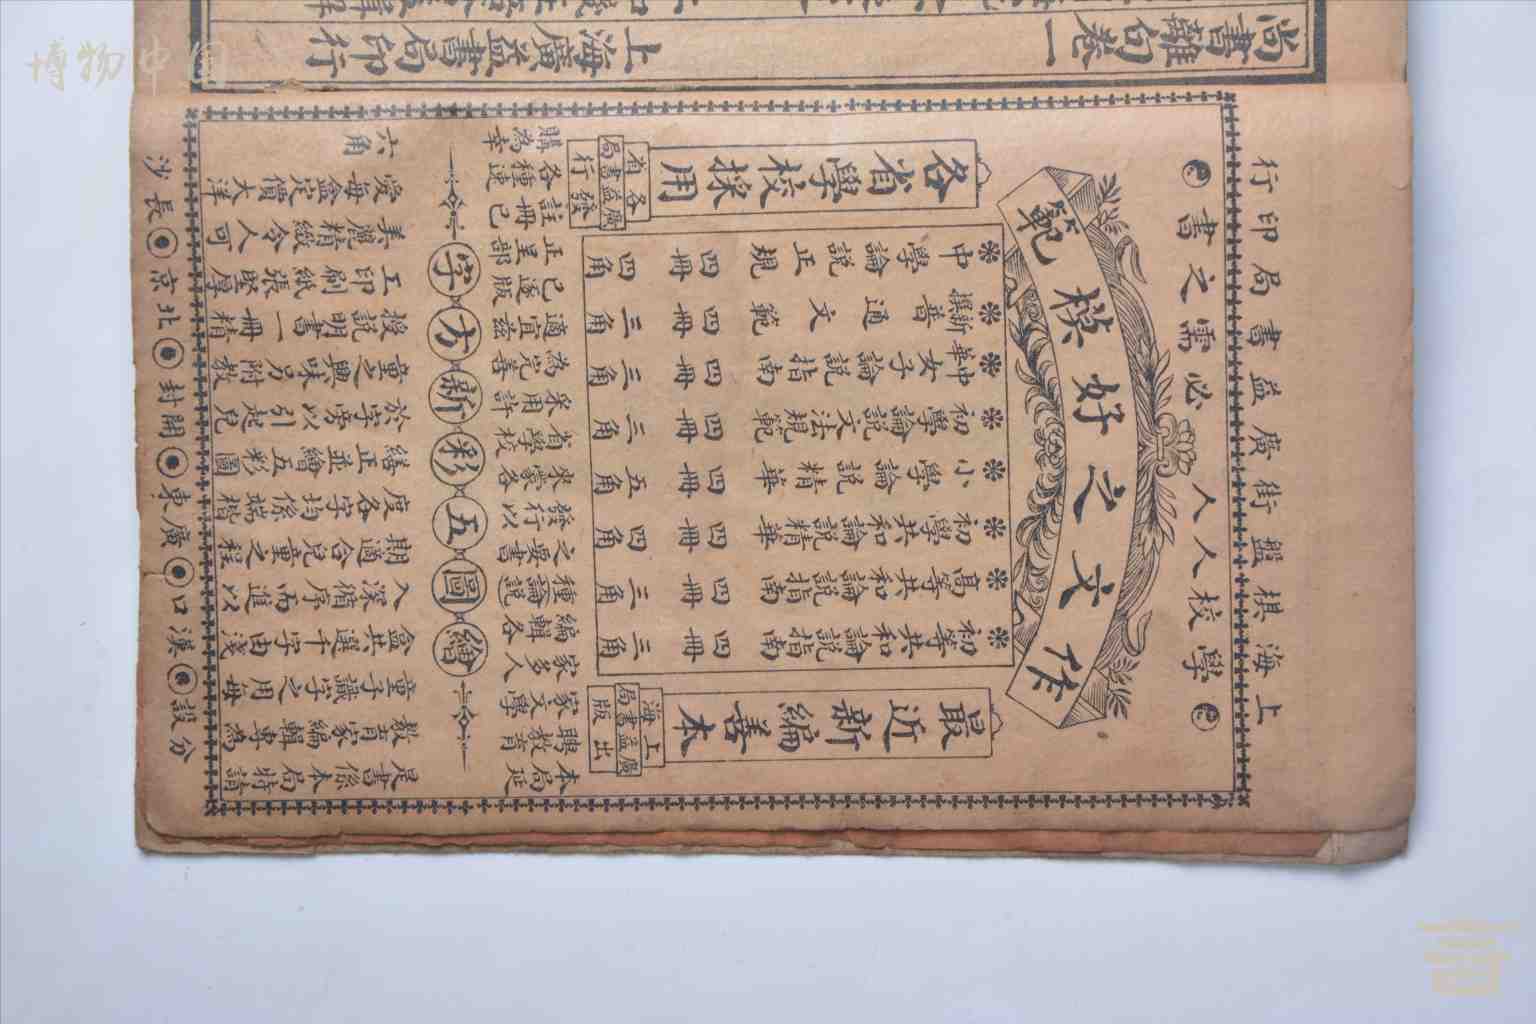 博物中国
尚書離句卷一
上海廣益書局印行
上海棋盤街廣益書局印行
學校人人必需之書
作文之好模範
最近新編善本
上海廣益書局出版
初等共和論說指南 四冊 三角
高等共和論說指南 四冊 三角
初學共和論說精華 四冊 四角
小學論說精華 四冊 五角
初學論說文法規範 四冊 三角
中華女子論說指南 四冊 三角
新撰普通文範 四冊 三角
中學論說正規 四冊 四角
各省學校採用
各省廣益書局發行
本局延
聘教育
家文學
家多人
編輯各
種論說
之要書
發行以
來蒙各
省學校
采用許
為完善
適宜茲
已逐版
正呈部
註冊已
各種速
購為幸
繪圖五彩新方字
是書係本局特請
教育家編輯專為
童子識字之用每
盒共選千字由淺
入深循序而進以
期適合兒童之程
度各字均係端楷
繕正並繪五彩圖
於字旁以引起兒
童之興味另附教
授說明書一冊精
工印刷紙張堅厚
美麗精緻令人可
愛每盒定價大洋
六角
分設 漢口 廣東 開封 北京 長沙